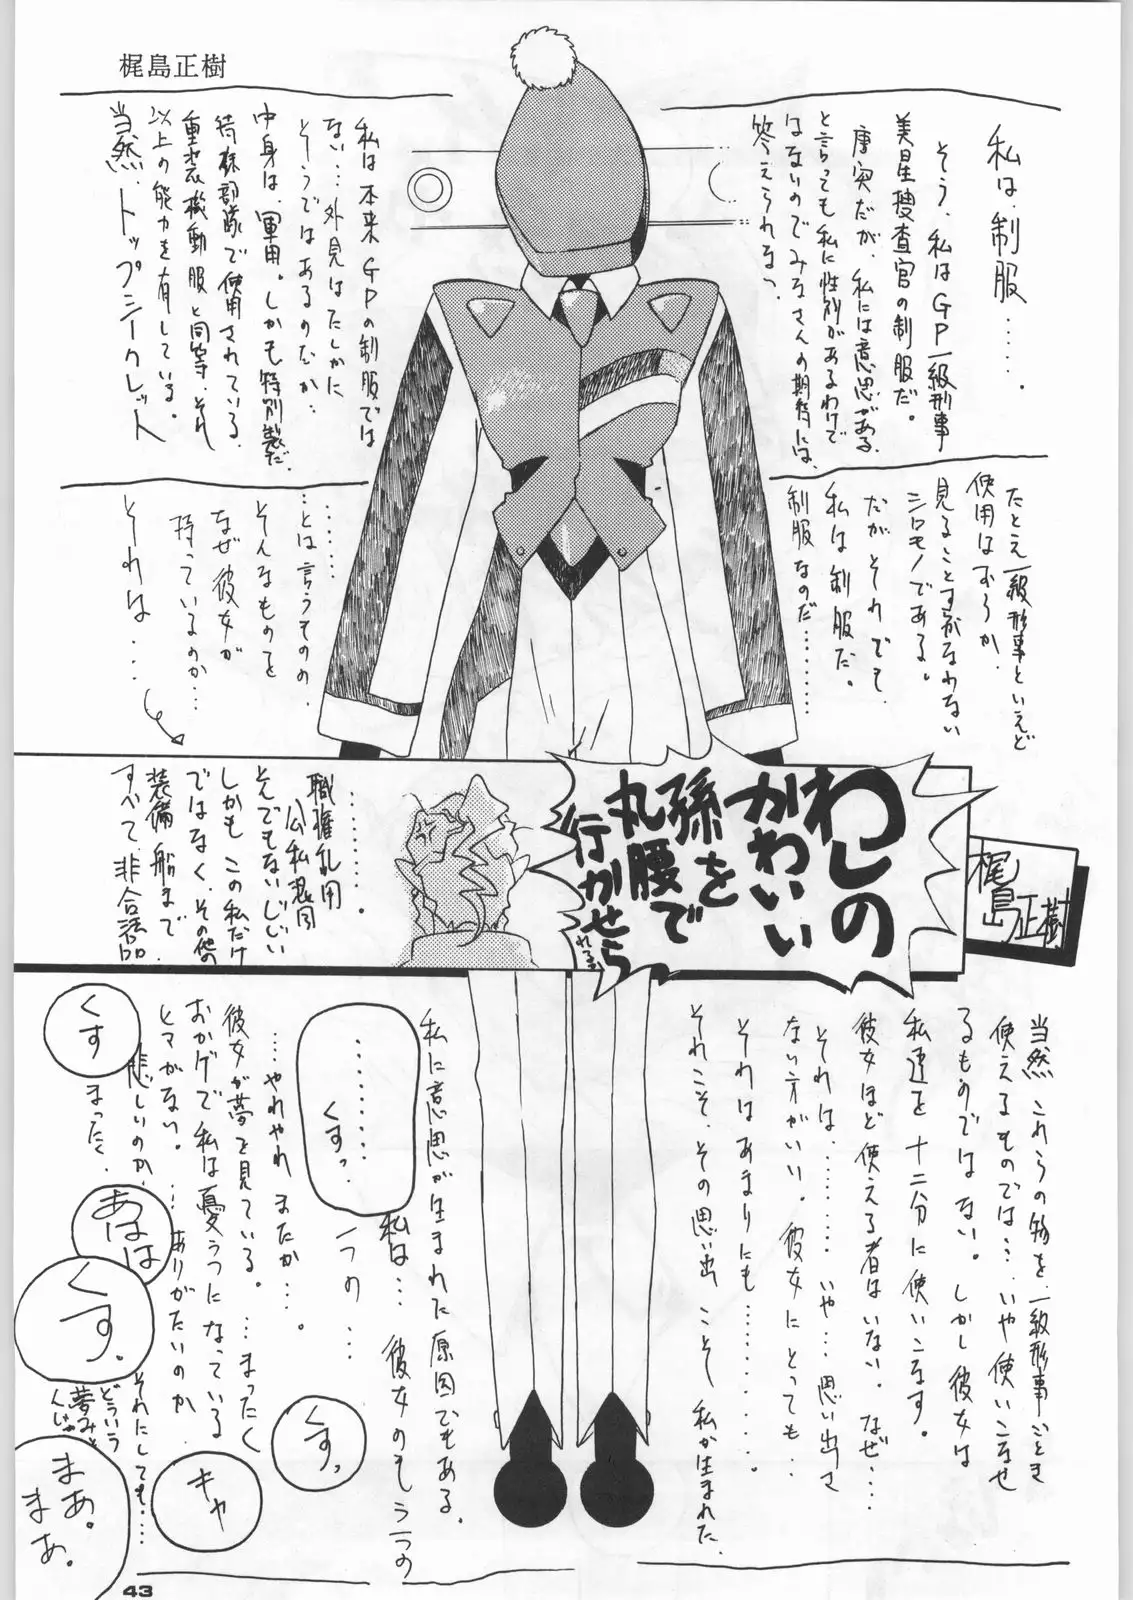 梶島正樹
私は、制服‥‥‥。
そう、私はGP一級刑事
美星捜査官の制服だ。
唐突だが、私には意思がある
と言っても私に性別があるわけで
はないのでみなさんの期待には、
答えられない
私は本来GPの制服では
ない‥‥外見はたしかに
そうではあるのだが‥
中身は、軍用。しかも特別製だ。
特殊部隊で使用されている、
重装機動服と同等、それ
以上の能力を有している。
当然、トップシークレット
たとえ一級刑事といえど
使用はおろか、
見ることすらかなわない
シロモノである。
だがそれでも
私は制服だ。
制服なのだ‥‥‥‥
‥‥‥‥‥
‥とは言うものの、
そんなものを
なぜ彼女が
持っているのか‥‥
それは‥‥‥
わしの
かわいい
孫を
丸腰で
行かせら
れるか
梶島正樹
‥‥‥‥‥‥。
職権乱用
公私混同
とんでもないじじい
しかも この私だけ
ではなく、その他の
装備、船まで
すべて、非合法品
当然 これらの物を、一級刑事ごとき
使えるものでは‥‥いや使いこなせ
るものではない。しかし彼女は
私達を十二分に使いこなす。
彼女ほど使える者はいない。なぜ‥‥
それは‥‥‥‥いや‥‥思い出さ
ない方がいい。彼女にとっても‥
それはあまりにも‥‥‥‥‥‥。
それこそ、その思い出こそ 私が生まれた、
私に意思が生まれた原因でもある。
私は‥‥ 彼女のもう一つの
一つの‥‥
‥‥‥‥‥
くすっ
くすっ
‥‥やれやれ またか‥‥。
彼女が夢を見ている。‥‥まったく
おかげで私は憂うつになっている
ヒマがない。‥‥ありがたいのか
悲しいのか、
まったく、
くす
あはは
くす。
キャ
それにしても‥‥‥
どういう
夢みと
んじゃ
まあ。
まあ。
43